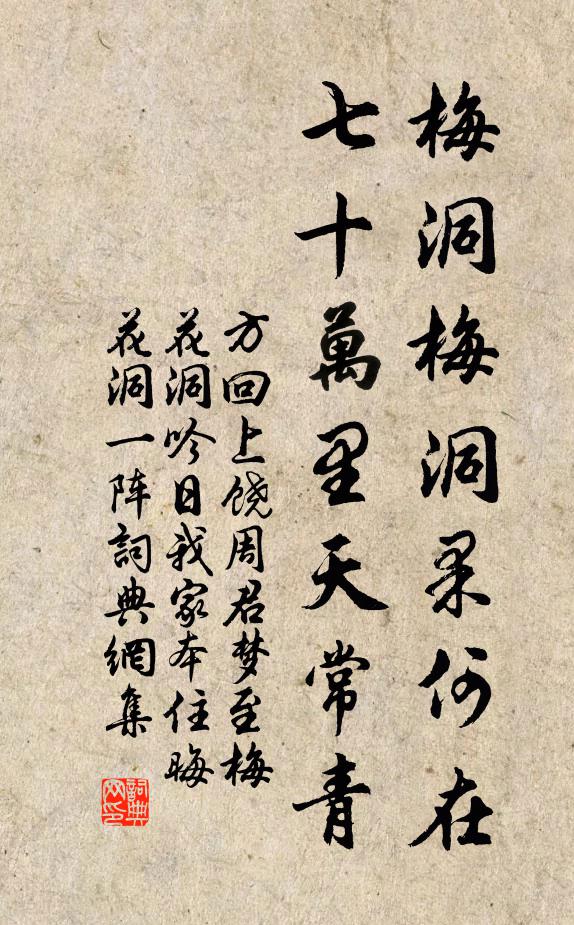 梅洞梅洞果何在
七十萬里天常青
方回上饶周君梦至梅
花洞吟日我家本住晦
花洞一阵詞典網集
詞典网印